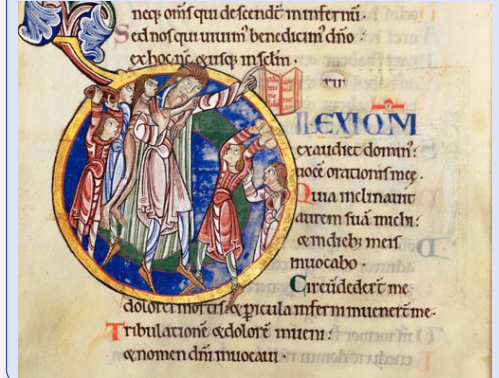 neq; om̄s qui descendt̄ in infernū.
Sed nos qui uiuim' benedicim' dn̄o
ex hoc nc̄ & usq; in sclm̄.
D
ILEXI QM̄
exaudiet domin':
uocē orationis mee.
Quia inclinauit
aurem suā michi:
& in dieb; meis
inuocabo.
Circūdeder̄t me
dolores mortis: & pericula inferni inuener̄t me.
Tribulationē & dolorē inueni:
& nomen dn̄i inuocaui.